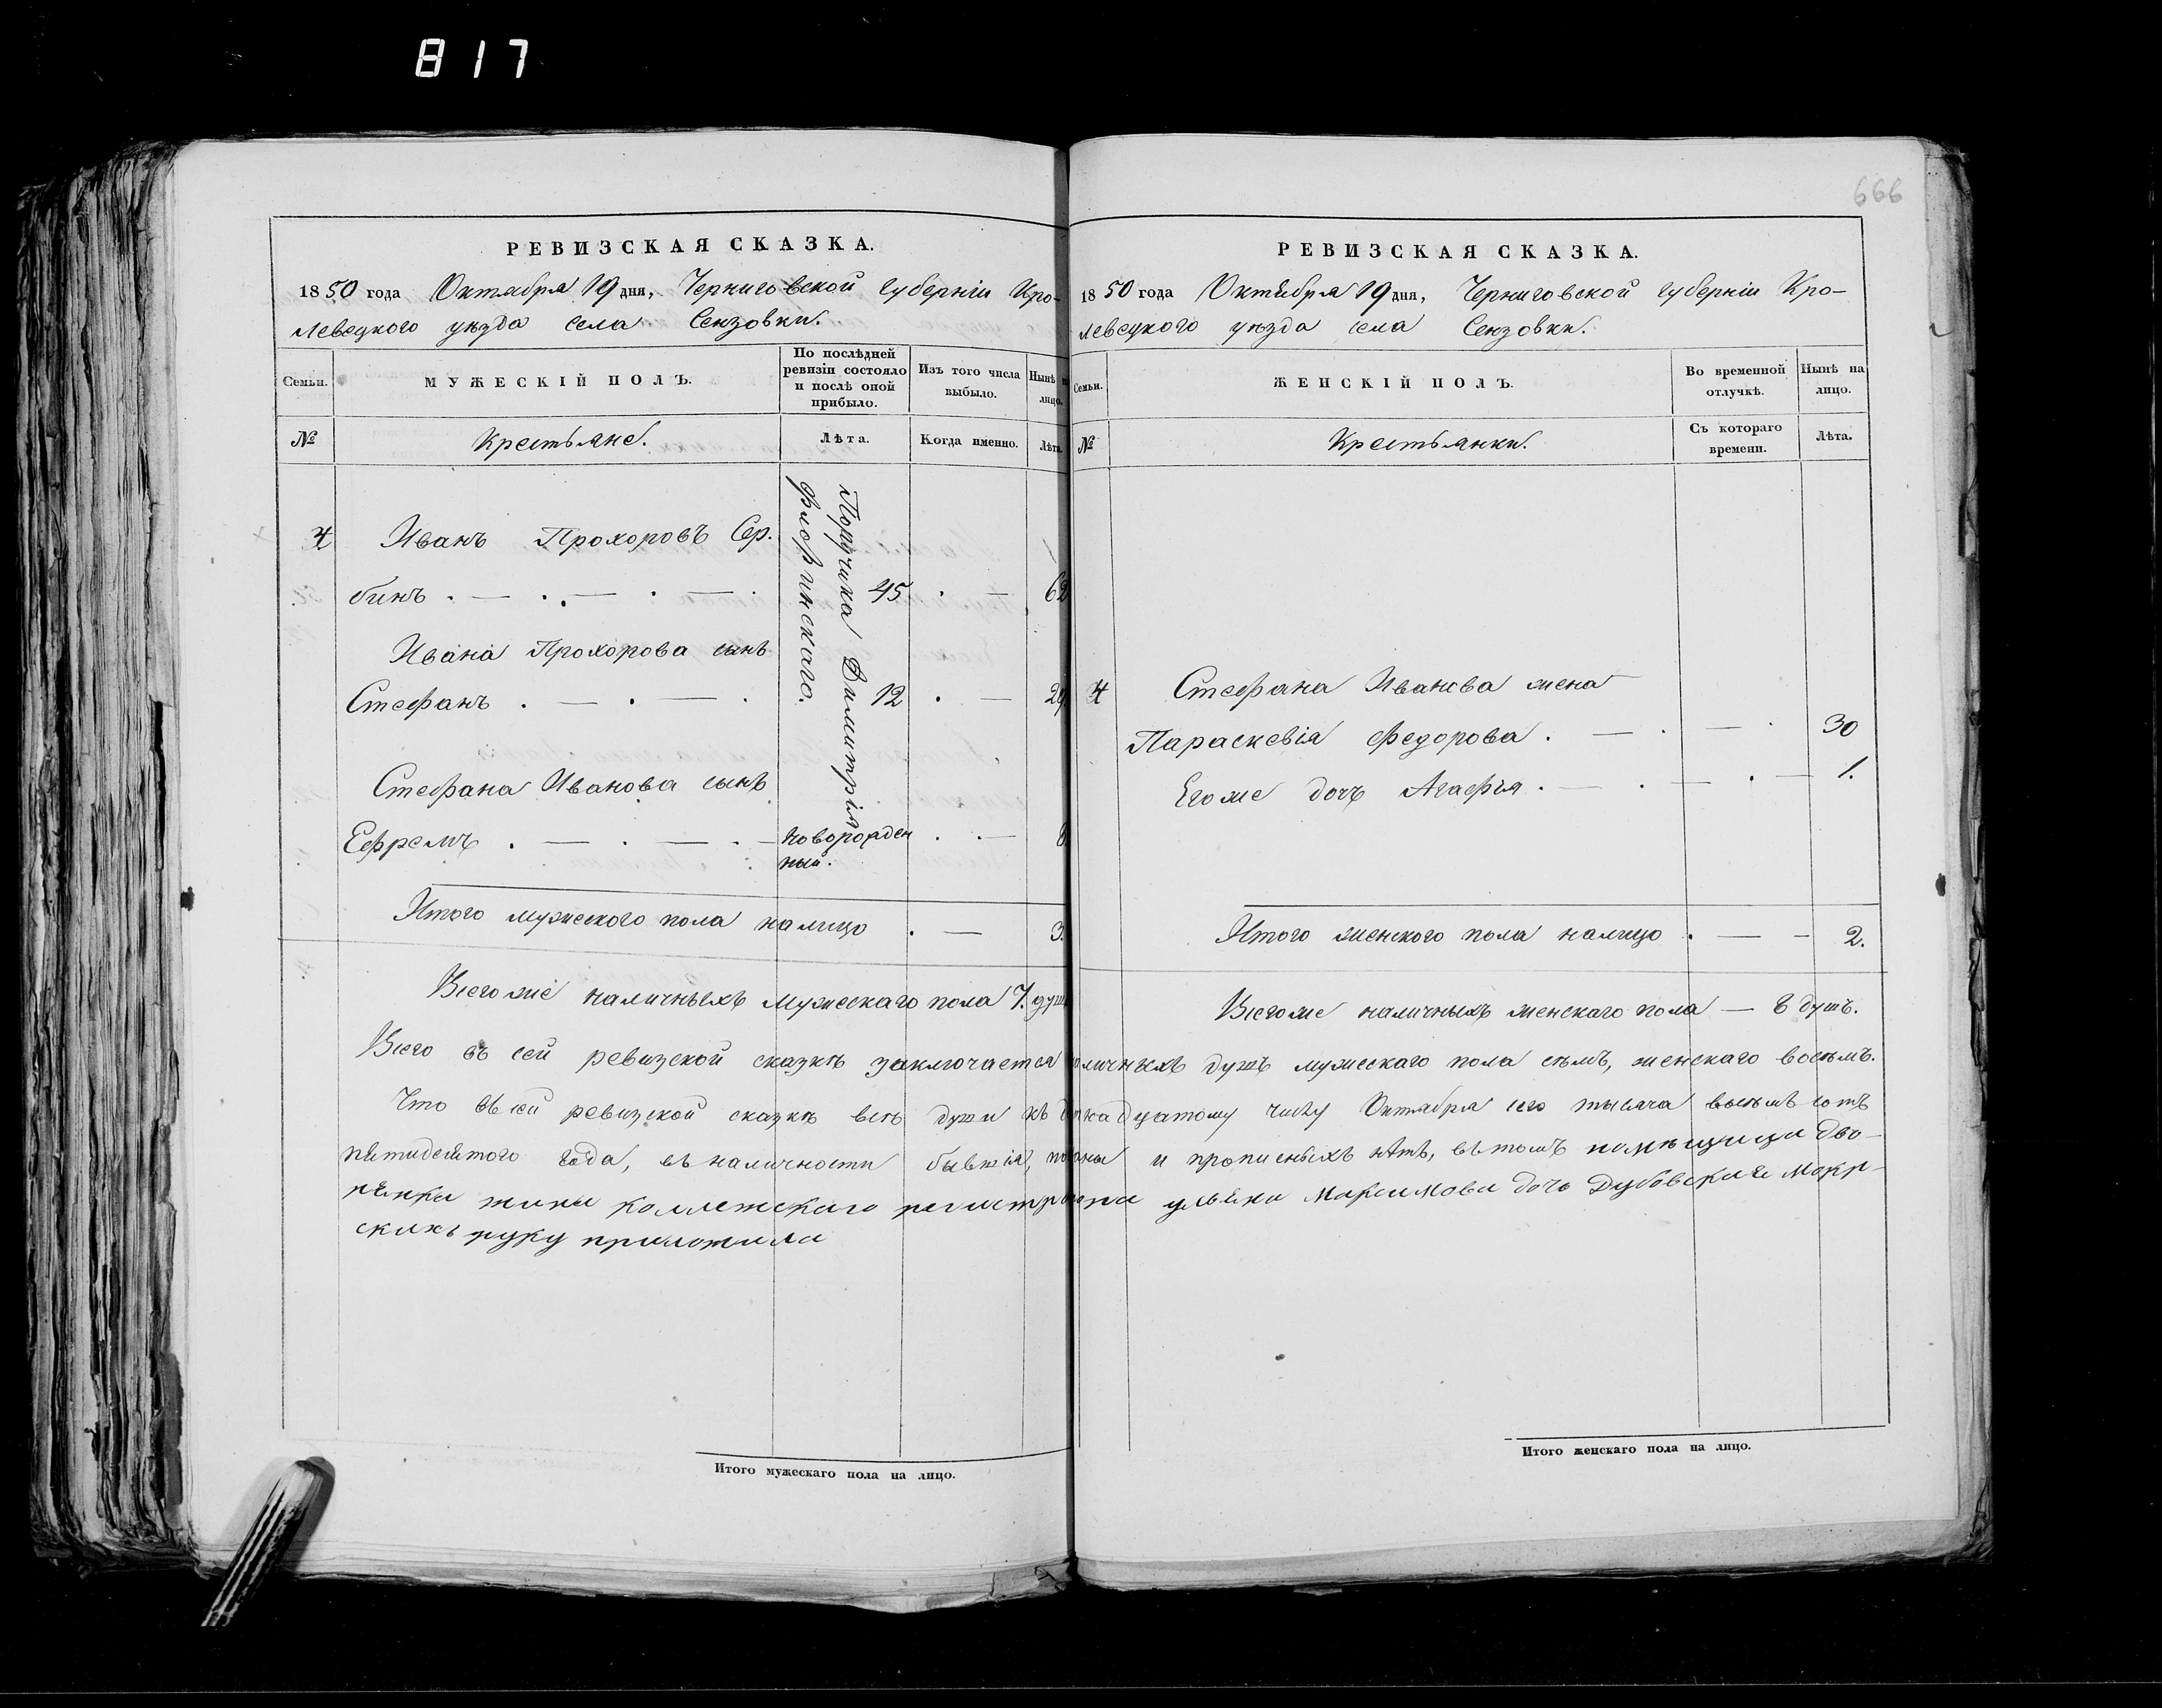 817
666
РЕВИЗСКАЯ СКАЗКА.
1850 года Октября 19 дня, Черниговской губерніи Кро-
левецкого уѣзда села Сензовки.
Семьи.
МУЖЕСКІЙ ПОЛЪ.
По послѣдней ревизіи состояло и послѣ оной прибыло.
Изъ того числа выбыло.
Нынѣ на лицо.
№
Крестьяне.
Лѣта.
Когда именно.
Лѣта.
Поручика Димитрія
4 Иванъ Прохоровъ Сер.
бинъ . — . — . — . 45 . — 62
Ивана Прохорова сынъ
Стефанъ . — . — . 12 . — 29
Стефана Иванова сынъ
Ефремъ . — . — . — новорожден . . — 8.
ный.
Итого мужеского пола налицо . — 3.
Всего же наличныхъ мужескаго пола 7. душ
РЕВИЗСКАЯ СКАЗКА.
1850 года Октября 19 дня, Черниговской губерніи Кро-
левецкого уѣзда села Сензовки.
Семьи.
ЖЕНСКІЙ ПОЛЪ.
Во временной отлучкѣ.
Нынѣ на лицо.
№
Крестьянки.
Съ котораго времени.
Лѣта.
4 Стефана Иванова жена
Параскевія Федорова . — . — . 30
Его же дочь Агафья . — . — . — 1.
Итого женского пола налицо . — - 2.
Всего же наличныхъ женскаго пола — 8 душъ.
Всего въ сей ревизской сказкѣ заключается наличныхъ душъ мужескаго пола сѣмъ, женскаго восѣмъ.
Что въ сей ревизской сказкѣ всѣ души къ девятнадцатому числу Октября сего тысяча восѣмъ сотъ
пятидесятого года, въ наличности бывшія, показаны и прописныхъ нѣтъ, въ томъ помѣщица дво-
рянка жина коллежскаго регистратора ульяна Максимова дочь Дубовская Мокр-
руку приложила
Итого мужескаго пола на лицо.
Итого женскаго пола на лицо.